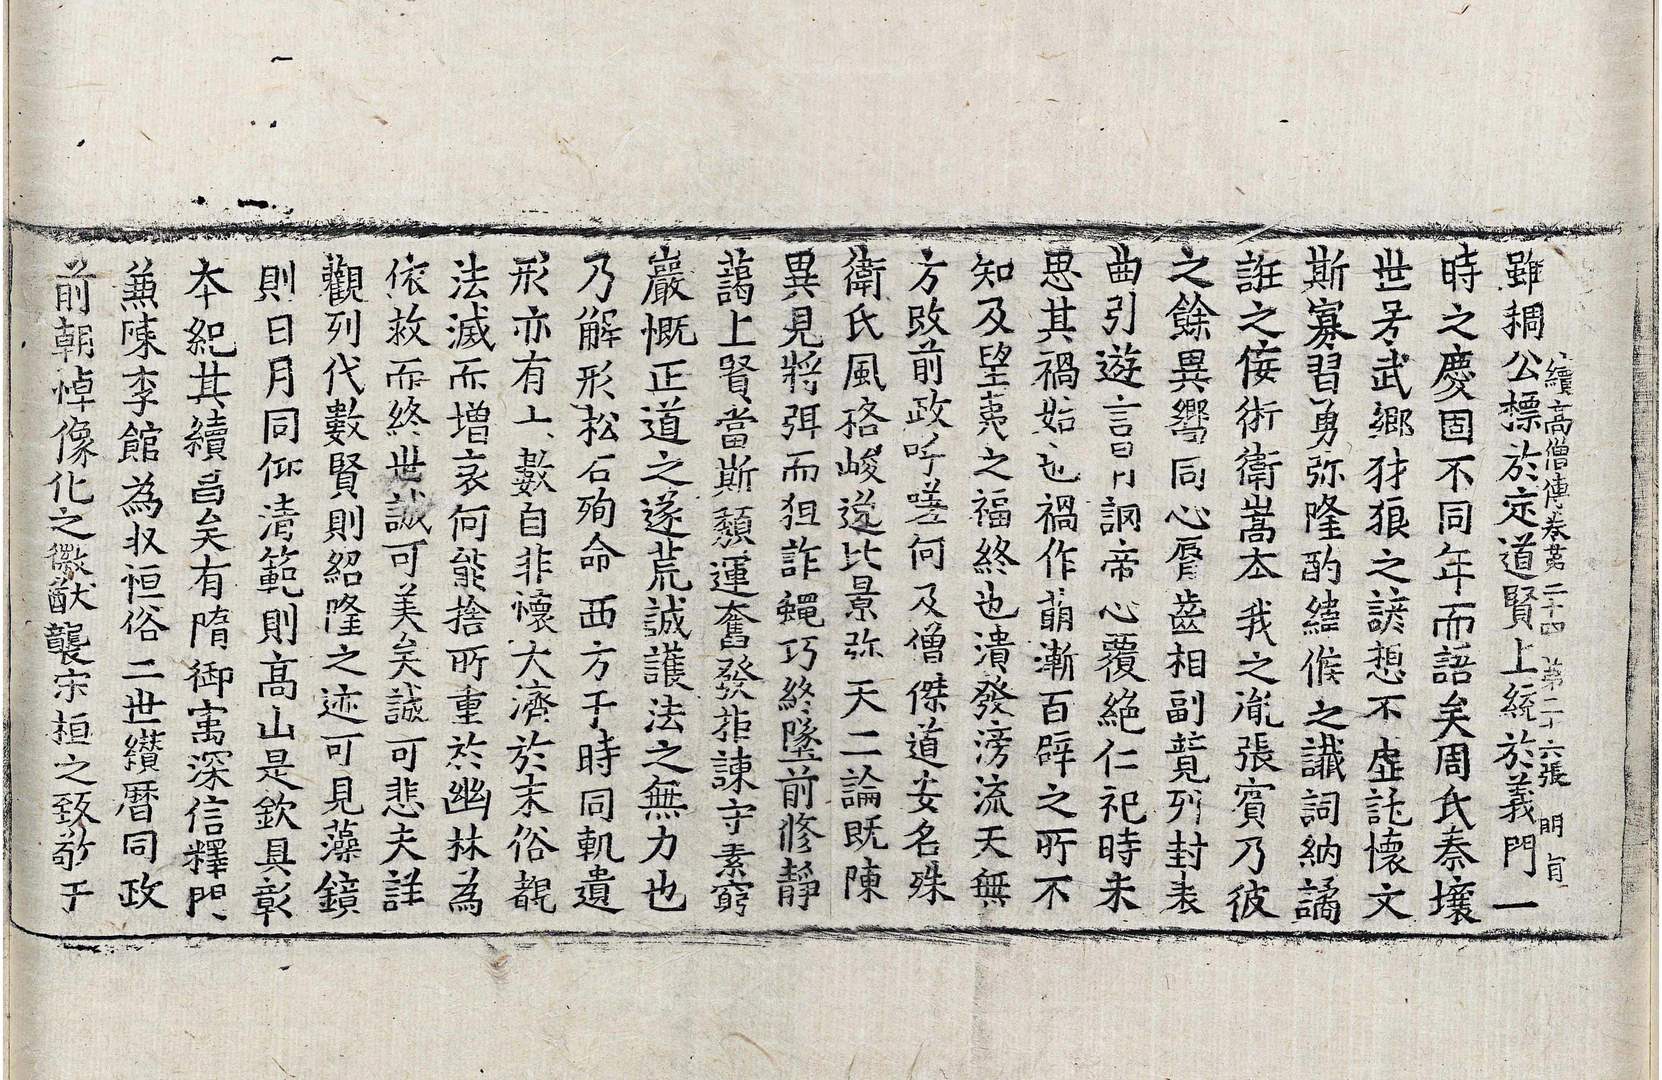 續高僧傳卷第二十四　第二十六張　明貞
雖稠公標於定道賢上統於義門一
時之慶固不同年而語矣周氏秦壤
世号武鄉豺狼之諺想不虛託懷文
斯寡習勇弥隆酌緯候之讖詞納譎
誑之侫術衛嵩本我之胤張賓乃彼
之餘異嚮同心脣齒相副競列封表
曲引遊言冐罔帝心覆絕仁祀時未
思其禍始也禍作萠漸百辟之所不
知及望夷之福終也潰發滂流天無
方改前政呼嗟何及僧傑道安名殊
衛氏風格峻逸比景弥天二論既陳
異見將弭而狙詐蠅巧終墜前修靜
藹上賢當斯頹運奮發拒諫守素窮
巖慨正道之遂荒誠護法之無力也
乃解形松石殉命西方于時同軌遺
形亦有十數自非懷大濟於末俗覩
法滅而增哀何能捨所重於幽林為
依救而終世誠可美矣誠可悲夫詳
觀列代數賢則紹隆之迹可見藻鏡
則日月同仰清範則高山是欽具彰
本紀其續昌矣有隋御㝢深信釋門
兼陳李館為収恒俗二世纉曆同政
前朝悼像化之徽猷襲宋桓之致敬于